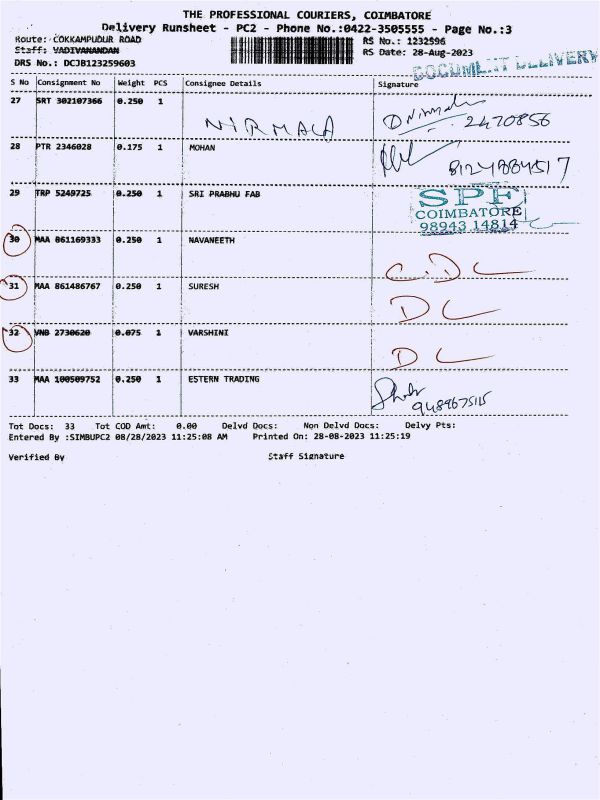 THE PROFESSIONAL COURIERS, COIMBATORE
Delivery Runsheet - PC2 - Phone No.:0422-3505555 - Page No.:3
Route: COKKAMPUDUR ROAD RS No.: 1232596
Staff: VADIVANANDAN RS Date: 28-Aug-2023
DRS No.: DCJB123259603
DOCUMENT DELIVERY
S No Consignment No Weight PCS Consignee Details Signature
27 SRT 302107366 0.250 1 NIRMALA DNirmala 2470856
28 PTR 2346028 0.175 1 MOHAN 8124984517
29 TRP 5249725 0.250 1 SRI PRABHU FAB SPF
COIMBATORE
98943 14814
30 MAA 861169333 0.250 1 NAVANEETH C.DL
31 MAA 861486767 0.250 1 SURESH DL
32 VNB 2730620 0.075 1 VARSHINI DL
33 MAA 100509752 0.250 1 ESTERN TRADING 9489675115
Tot Docs: 33 Tot COD Amt: 0.00 Delvd Docs: Non Delvd Docs: Delvy Pts:
Entered By :SIMBUPC2 08/28/2023 11:25:08 AM Printed On: 28-08-2023 11:25:19
Verified By Staff Signature